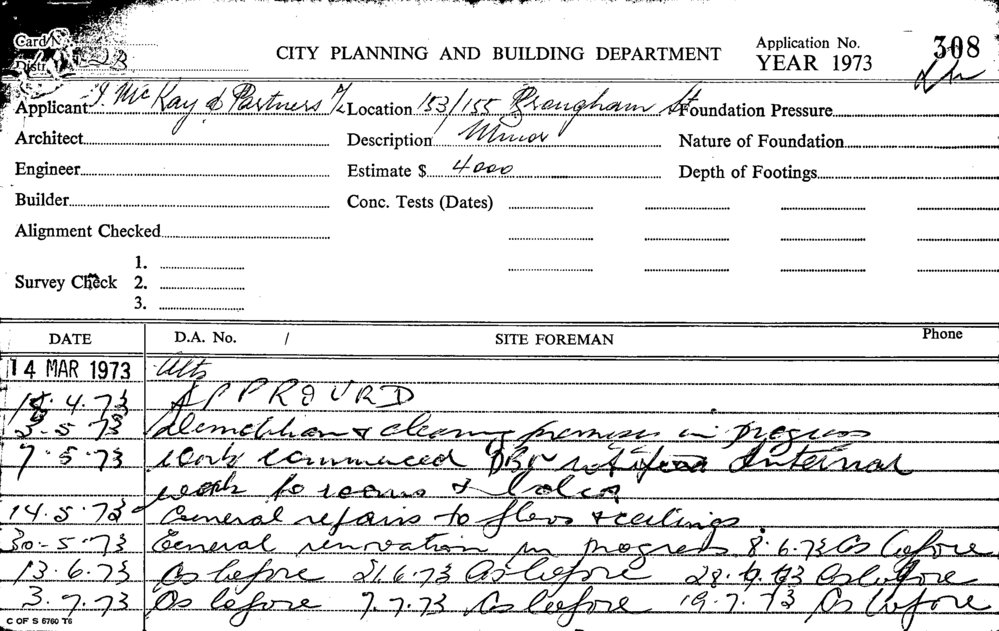 Card N
Distr 223
CITY PLANNING AND BUILDING DEPARTMENT
Application No. 308
YEAR 1973
Applicant J. McKay & Partners P/L Location 153/155 Brougham St Foundation Pressure
Architect Description Minor Nature of Foundation
Engineer Estimate $ 4000 Depth of Footings
Builder Conc. Tests (Dates)
Alignment Checked
1.
Survey Check 2.
3.
DATE D.A. No. / SITE FOREMAN Phone
14 MAR 1973 Alts
4.73 APPROVRD
3.5.73 Demolition & clearing premises in progress
7.5.73 work commenced internal
work to rooms &
14.5.73 General repairs to floors & ceilings.
30.5.73 General renovation in progress 8.6.73 As before
13.6.73 As before 21.6.73 As before 28. .73 As before
3.7.73 As before 7.7.73 As before 19.7.73 As before
C OF S 6760 T6